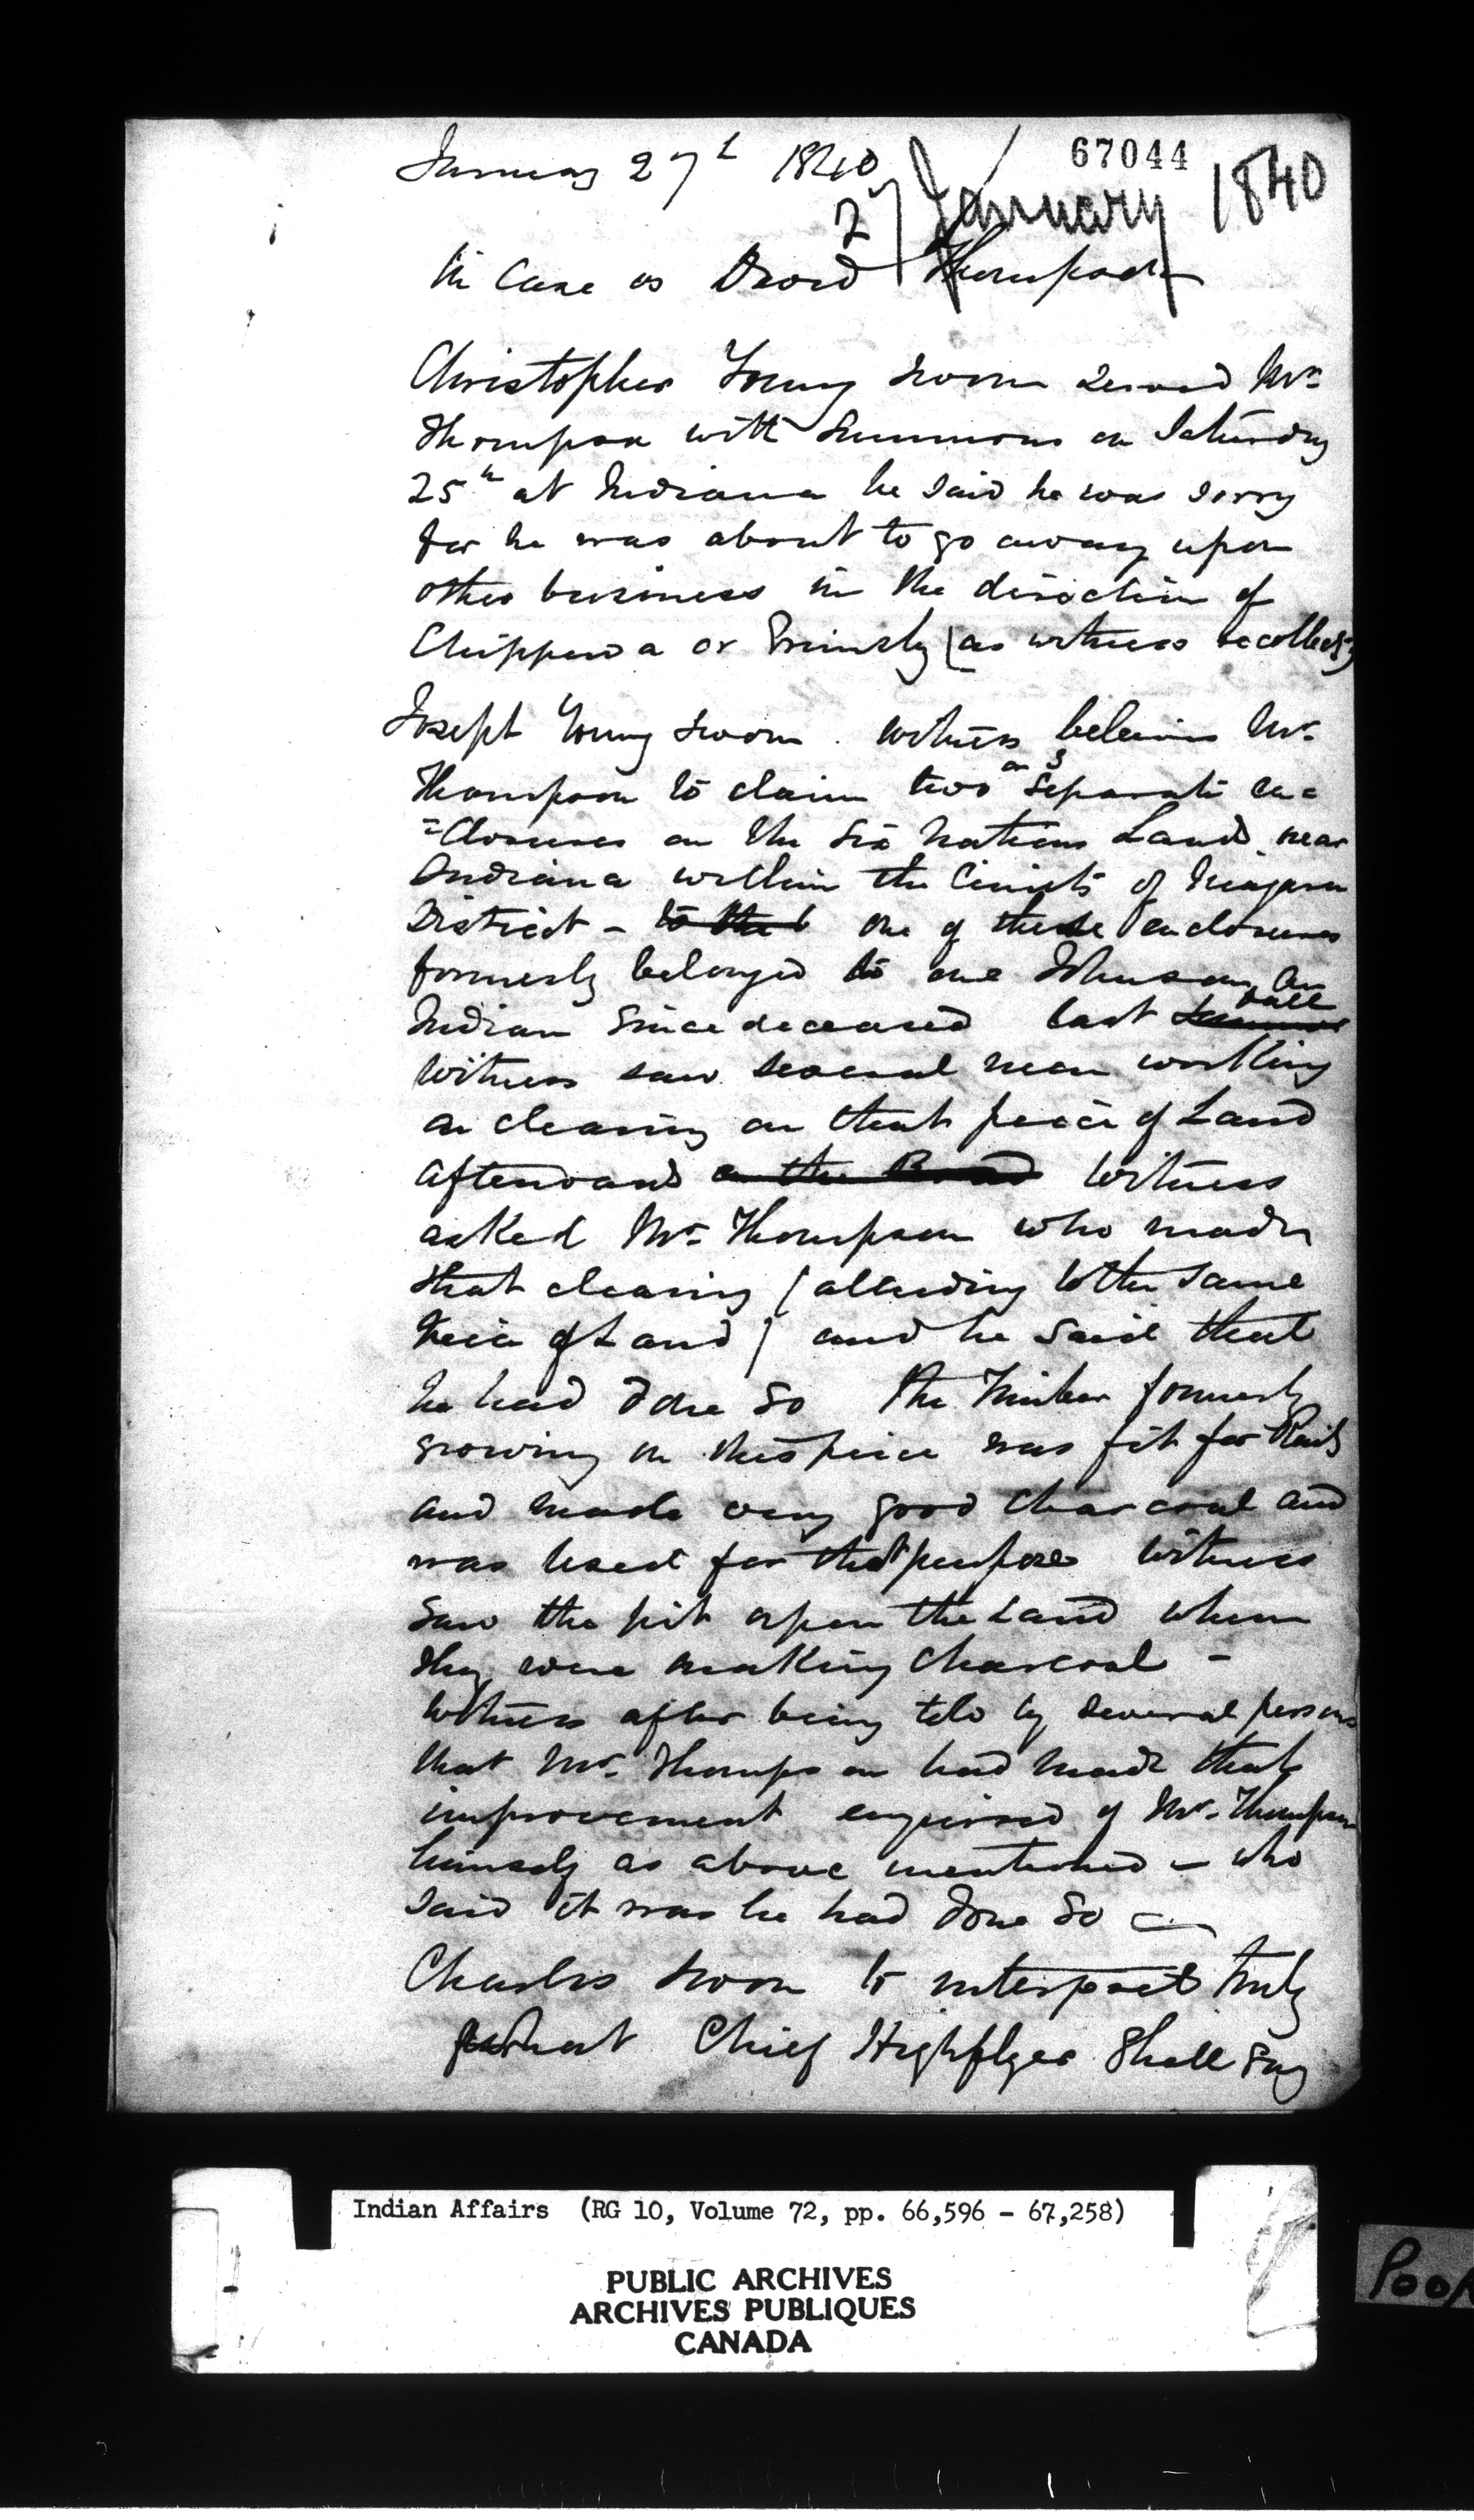 January 27th 1840
67044
27 January 1840
In Case vs David Thompson
Christopher Young sworn served Mr
Thompson with Summons on Saturday
25th at Indiana he said he was sorry
for he was about to go away upon
other business in the direction of
Chippewa or Grimsby (as witness recollects)
Joseph Young sworn. witness beleives Mr.
or 3
Thompson to claim two separate en=
=closures on the Six Nations Land near
Indiana within the Limits of Niagara
District - to the one of these enclosures
formerly belonged to one Johnson an
fall
Indian since deceased last Summer
Witness saw several men working
on clearing on that peice of Land
afterwards on the Road Witness
asked Mr. Thompson who made
that clearing (alluding to the same
peice of Land) and he said that
he had done so the Timber formerly
growing on this peice was fit for Rails
and made very good Charcoal and
was used for that purpose Witness
saw the pit upon the Land when
they were making Charcoal -
Witness after being told by several persons
that Mr. Thompson had made that
improvement enquired of Mr. Thompson
himself as above mentioned - who
said it was he had done so
Charles sworn to interpret truly
what Chief Highflyer shall say
Indian Affairs (RG 10, Volume 72, pp. 66,596 - 67,258)
PUBLIC ARCHIVES
ARCHIVES PUBLIQUES
CANADA